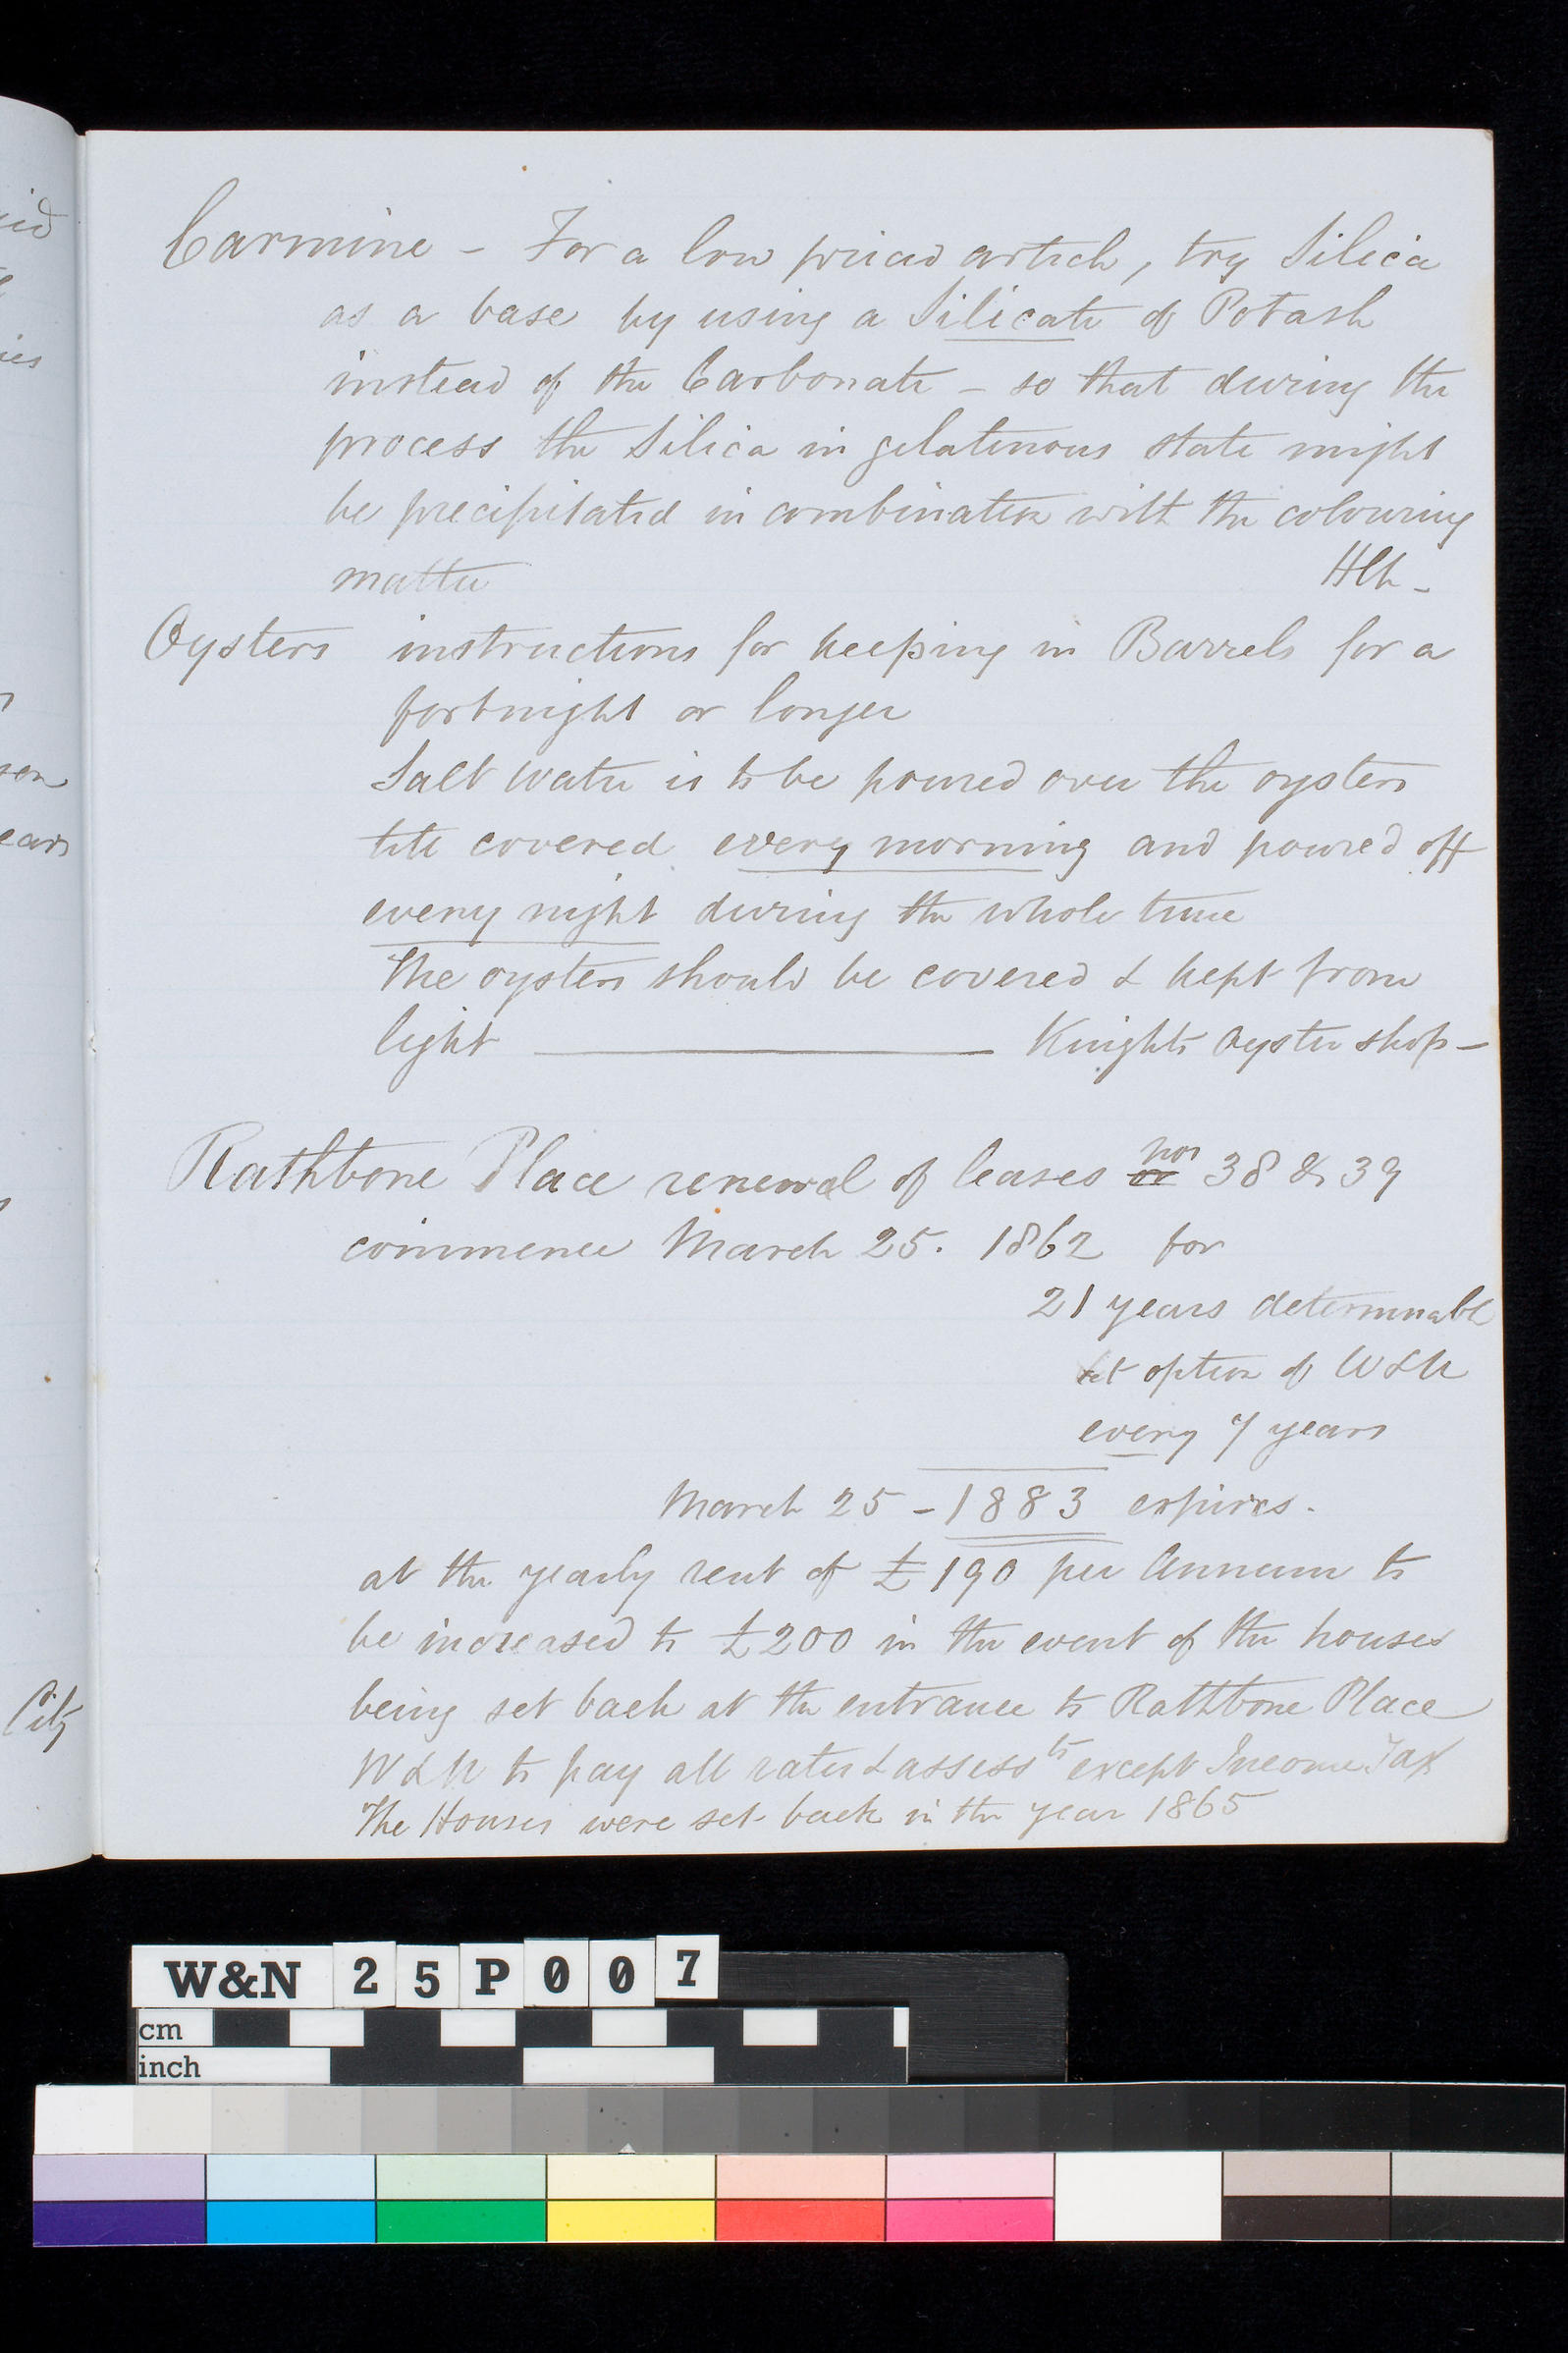 Carmine - For a low priced article, try Silica
as a base by using a Silicate of Potash
instead of the Carbonate - so that during the
process the Silica in gelatinous state might
be precipitated in combination with the colouring
matter
Oysters instructions for keeping in Barrels for a
fortnight or longer
Salt water is to be poured over the oysters
till covered every morning and poured off
every night during the whole time
The oysters should be covered & kept from
light Knights Oyster shop -
Rathbone Place renewal of leases nos 38 & 39
commence March 25. 1862 for
21 years determinable
at option of W&N
every 7 years
March 25 - 1883 expires.
at the yearly rent of £190 per Annum to
be increased to £200 in the event of the houses
being set back at the entrance to Rathbone Place
W&N to pay all rates & assessts except Income Tax
The Houses were set back in the year 1865
City
W&N 25P007
cm
inch